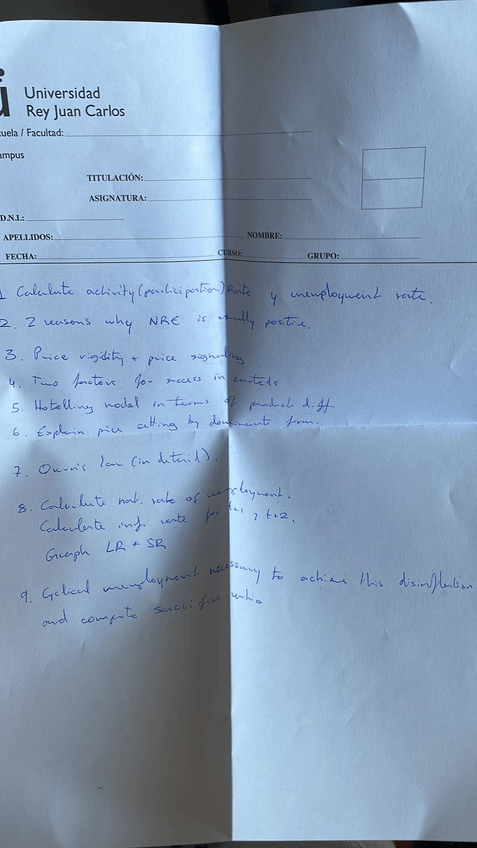 Universidad
Rey Juan Carlos
uela / Facultad:
ampus
TITULACIÓN:
ASIGNATURA:
D.N.I.:
APELLIDOS: NOMBRE:
FECHA: CURSO: GRUPO:
1 Calculate activity (participation) Rate y unemployment rate.
2. 2 reasons why NRE is usually positive.
3. Price rigidity + price signaling
4. Two factors for success in
5. Hotelling model in terms of product diff.
6. Explain price setting by dominant firm.
7. Okun's law (in detail).
8. Calculate nat. rate of unemployment.
Calculate inf. rate for t+1 y t+2.
Graph LR + SR
9. Cyclical unemployment necessary to achieve this disinflation
and compute sacrifice ratio